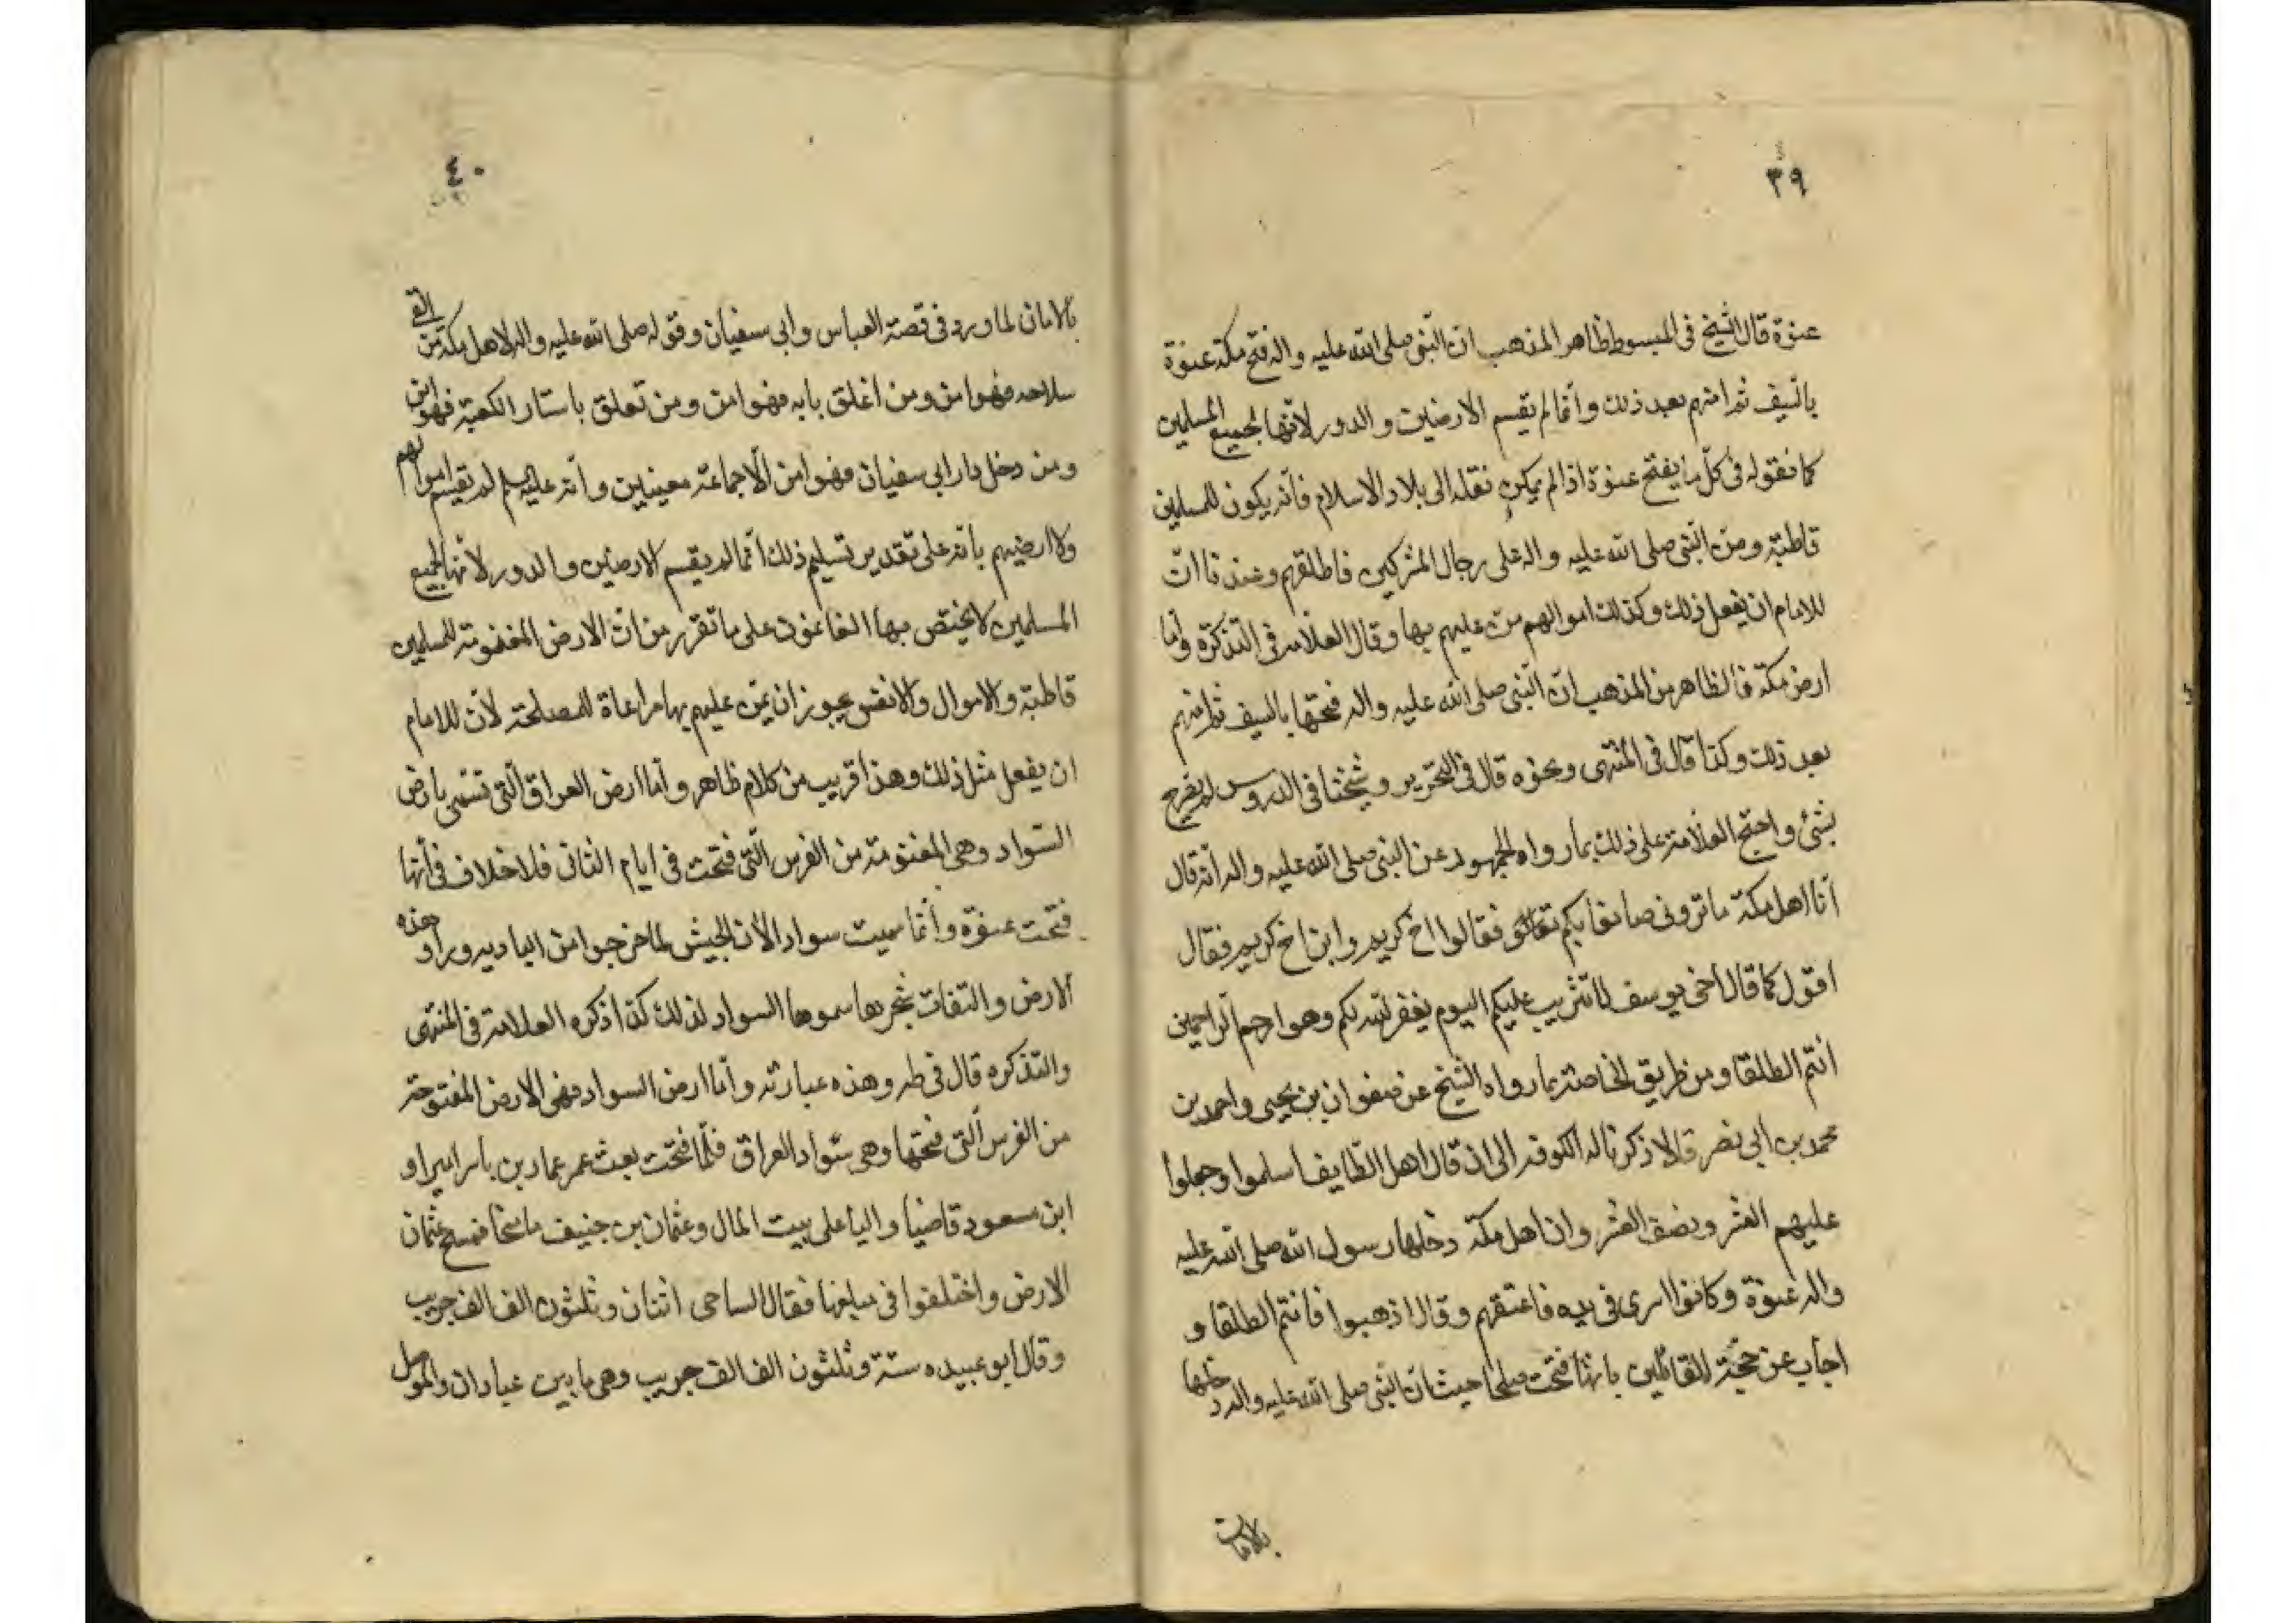 ٣٩
عنوة قال الشيخ في المبسوط ظاهر المذهب ان النبي صلى الله عليه واله فتح مكة عنوة
بالسيف ثم امنهم بعد ذلك وانما لم يقسم الارضين والدور لانها لجميع المسلمين
كما نقوله في كل ما يفتح عنوة اذا لم يمكن نقله الى بلاد الاسلام فانه يكون للمسلمين
قاطبة ومن النبي صلى الله عليه واله على رجال المشركين فاطلقهم وعندنا ان
للامام ان يفعل ذلك وكذلك اموالهم من عليهم بها وقال العلامة في التذكرة واما
ارض مكة فالظاهر من المذهب ان النبي صلى الله عليه واله فتحها بالسيف ثم امنهم
بعد ذلك وكذا قال في المنتهى ونحوه قال في التحرير وشيخنا في الدروس لم يصرح
بشئ واحتج العلامة على ذلك بما رواه الجمهور عن النبي صلى الله عليه واله انه قال
انا اهل مكة ما تروني صانعا بكم فقالوا اخ كريم وابن اخ كريم فقال
اقول كما قال اخي يوسف لا تثريب عليكم اليوم يغفر الله لكم وهو ارحم الراحمين
انتم الطلقا ومن طريق الخاصة بما رواه الشيخ عن صفوان بن يحيى واحمد بن
محمد بن ابي نصر قالا ذكرنا له الكوفة الى ان قال اهل الطايف اسلموا وجعلوا
عليهم العشر ونصف العشر وان اهل مكة دخلها رسول الله صلى الله عليه
واله عنوة وكانوا اسرى في يده فاعتقهم وقال اذهبوا فانتم الطلقا و
اجاب عن حجة القائلين بانها فتحت صلحا حيث ان النبي صلى الله عليه واله دخلها
بالامان
٤٠
بالامان لما ورد في قصة العباس وابي سفيان وقوله صلى الله عليه واله لاهل مكة من القى
سلاحه فهو امن ومن اغلق بابه فهو امن ومن تعلق باستار الكعبة فهو امن
ومن دخل دار ابي سفيان فهو امن الا جماعة معينين وانه عليه السلم لم يقسم اموالهم
ولا ارضيهم بانه على تقدير تسليم ذلك انما لم يقسم الارضين والدور لانها لجميع
المسلمين لا يختص بها الغانمون على ما تقرر من ان الارض المغنومة للمسلمين
قاطبة والاموال والانفس يجوز ان يمن عليهم بها مراعاة للمصلحة لان للامام
ان يفعل مثل ذلك وهذا قريب من كلام ظاهر واما ارض العراق التي تسمى بارض
السواد وهي المغنومة من الفرس التي فتحت في ايام الثاني فلا خلاف في انها
فتحت عنوة وانما سميت سوادا لان الجيش لما خرجوا من الباديه وراوا هذه
الارض والتفات شجرها سموها السواد لذلك كذا ذكره العلامة في المنتهى
والتذكره قال في ط وهذه عبارته واما ارض السواد فهي الارض المفتوحة
من الفرس التي فتحها وهي سواد العراق فلما فتحت بعث عمر عمار بن ياسر اميرا و
ابن مسعود قاضيا واليا على بيت المال وعثمان بن حنيف ماسحا فمسح عثمان
الارض واختلفوا في مبلغها فقال الساجي اثنان وثلثون الف الف جريب
وقال ابو عبيده ستة وثلثون الف الف جريب وهي ما بين عبادان والموصل